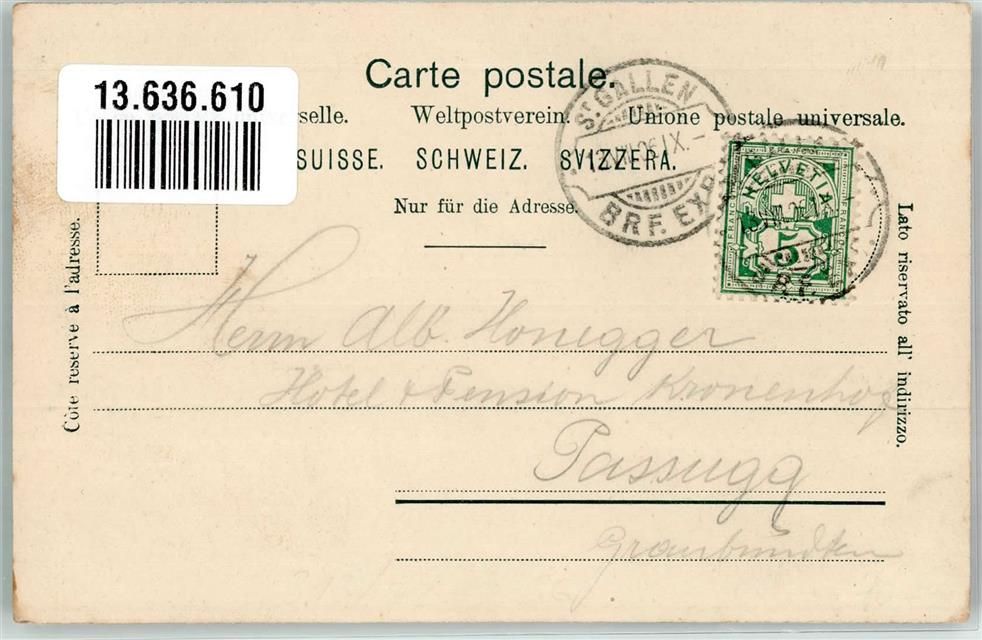 Carte postale.
13.636.610
rselle. Weltpostverein. Unione postale universale.
SUISSE. SCHWEIZ. SVIZZERA.
Nur für die Adresse.
ST GALLEN
BRF. EXP
HELVETIA
FRANCO
5
Côté réservé à l'adresse.
Lato riservato all' indirizzo.
Herrn Alb. Honegger
Hotel & Pension Kronenhof
Passugg
Graubündten